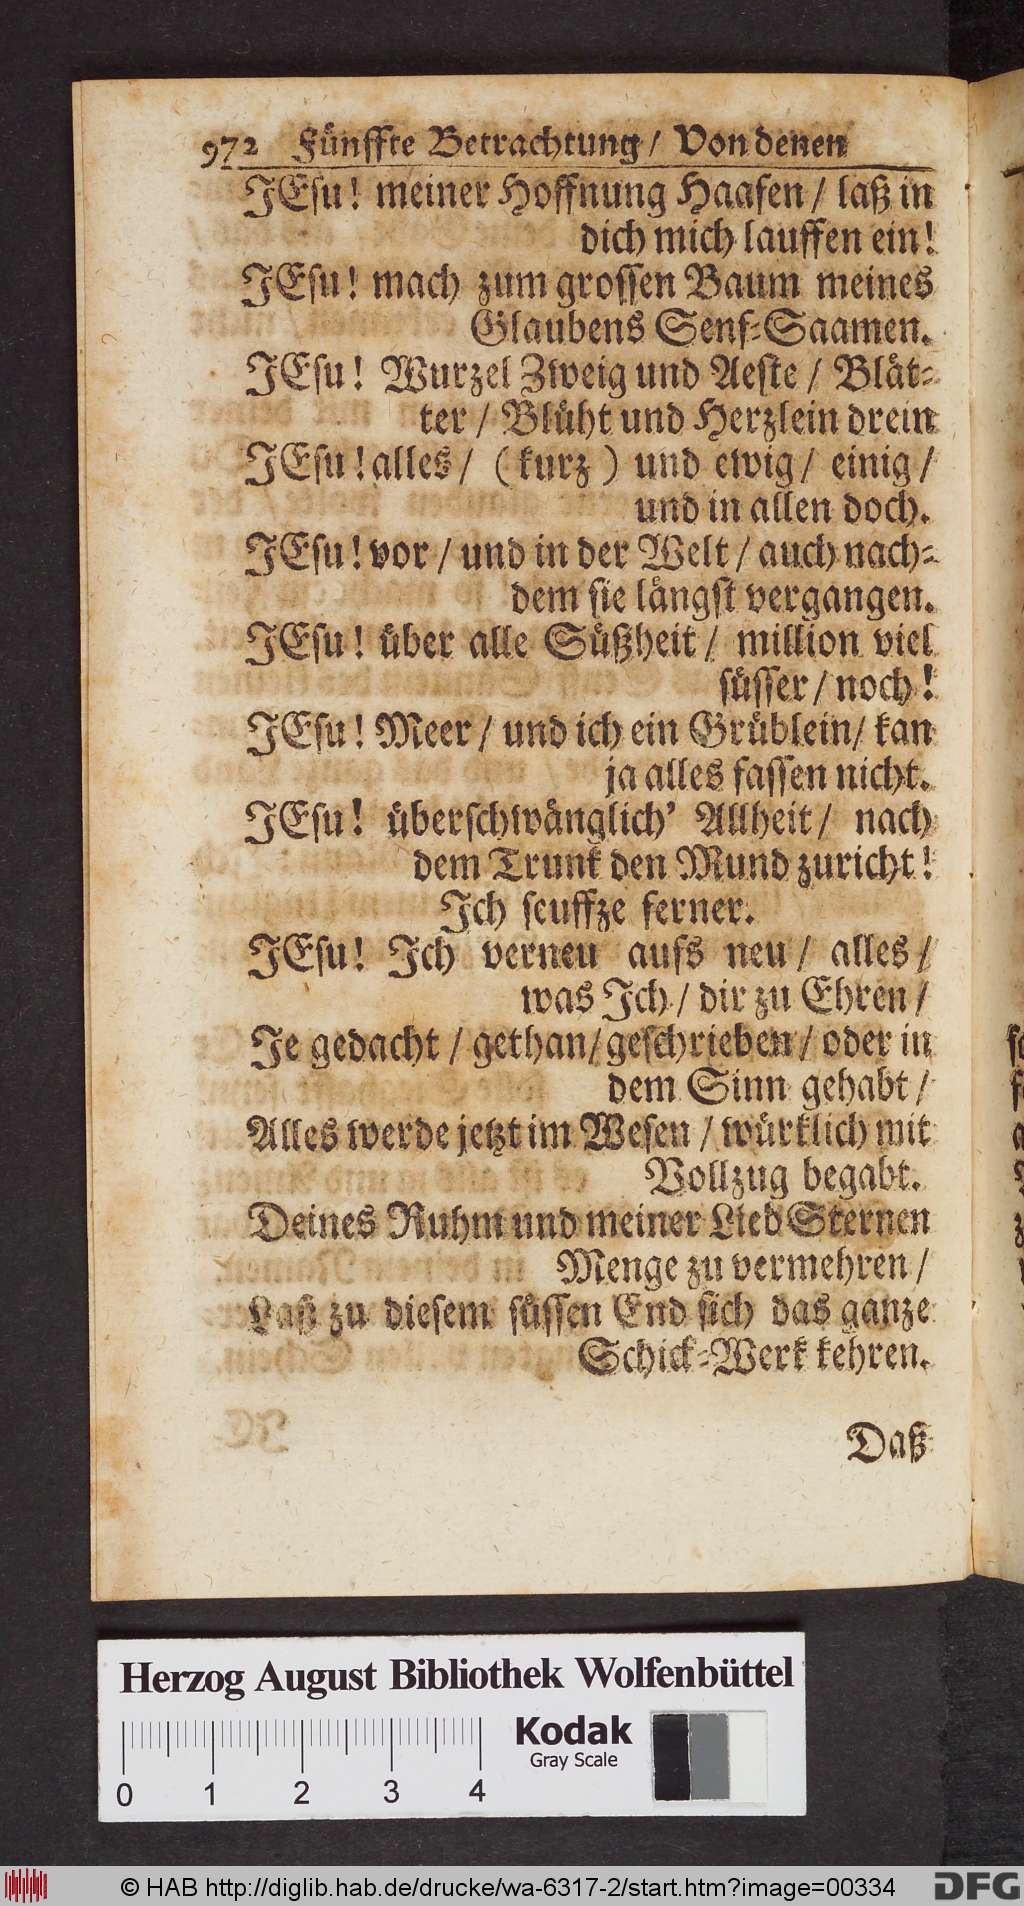 972 Fünffte Betrachtung / Von denen
JEsu! meiner Hoffnung Haafen / laß in
dich mich lauffen ein!
JEsu! mach zum grossen Baum meines
Glaubens Senf-Saamen.
JEsu! Wurzel Zweig und Aeste / Blät-
ter / Blüht und Herzlein drein
JEsu! alles / (kurz) und ewig / einig /
und in allen doch.
JEsu! vor / und in der Welt / auch nach-
dem sie längst vergangen.
JEsu! über alle Süßheit / million viel
süsser / noch!
JEsu! Meer / und ich ein Grüblein / kan
ja alles fassen nicht.
JEsu! überschwänglich' Allheit / nach
dem Trunk den Mund zuricht!
Ich seuffze ferner.
JEsu! Ich verneu aufs neu / alles /
was Ich / dir zu Ehren /
Je gedacht / gethan / geschrieben / oder in
dem Sinn gehabt /
Alles werde jetzt im Wesen / würklich mit
Vollzug begabt.
Deines Ruhm und meiner Lied Sternen
Menge zu vermehren /
Laß zu diesem süssen End sich das ganze
Schick-Werk kehren.
Daß
Herzog August Bibliothek Wolfenbüttel
Kodak
Gray Scale
0 1 2 3 4
© HAB http://diglib.hab.de/drucke/wa-6317-2/start.htm?image=00334
DFG